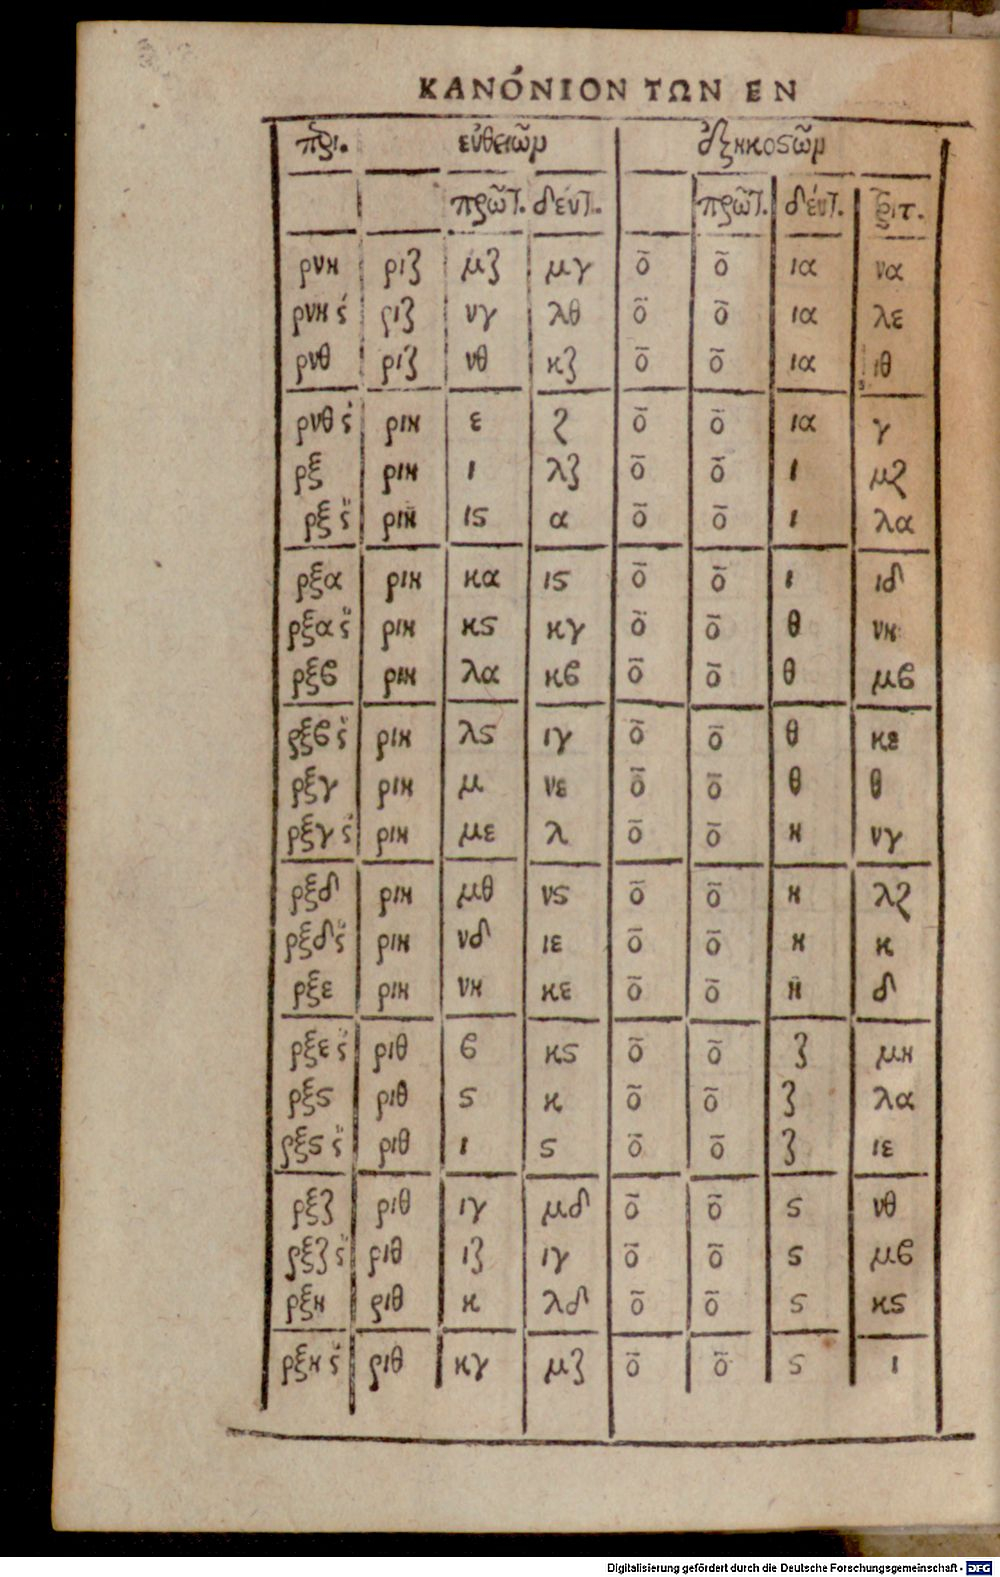 ΚΑΝΌΝΙΟΝ ΤΩΝ ΕΝ
πρι. εὐθειῶν ἑξηκοϛῶν
πρῶτ. δεύτ. πρῶτ. δεύτ. τριτ.
ρνη ριζ μζ μγ ō ō ια να
ρνη ϛ ριζ νγ λθ ō ō ια λε
ρνθ ριζ νθ κζ ō ō ια ιθ
ρνθ ϛ ριη ε ζ ō ō ια γ
ρξ ριη ι λζ ō ō ι μζ
ρξ ϛ ριη ιϛ α ō ō ι λα
ρξα ριη κα ιϛ ō ō ι ιδ
ρξα ϛ ριη κϛ κγ ō ō θ νη
ρξϐ ριη λα κϐ ō ō θ μϐ
ρξϐ ϛ ριη λϛ ιγ ō ō θ κε
ρξγ ριη μ νε ō ō θ θ
ρξγ ϛ ριη με λ ō ō η νγ
ρξδ ριη μθ νϛ ō ō η λζ
ρξδ ϛ ριη νδ ιε ō ō η κ
ρξε ριη νη κε ō ō η δ
ρξε ϛ ριθ ϐ κϛ ō ō ζ μη
ρξϛ ριθ ϛ κ ō ō ζ λα
ρξϛ ϛ ριθ ι ϛ ō ō ζ ιε
ρξζ ριθ ιγ μδ ō ō ϛ νθ
ρξζ ϛ ριθ ιζ ιγ ō ō ϛ μϐ
ρξη ριθ κ λδ ō ō ϛ κϛ
ρξη ϛ ριθ κγ μζ ō ō ϛ ι
Digitalisierung gefördert durch die Deutsche Forschungsgemeinschaft - DFG